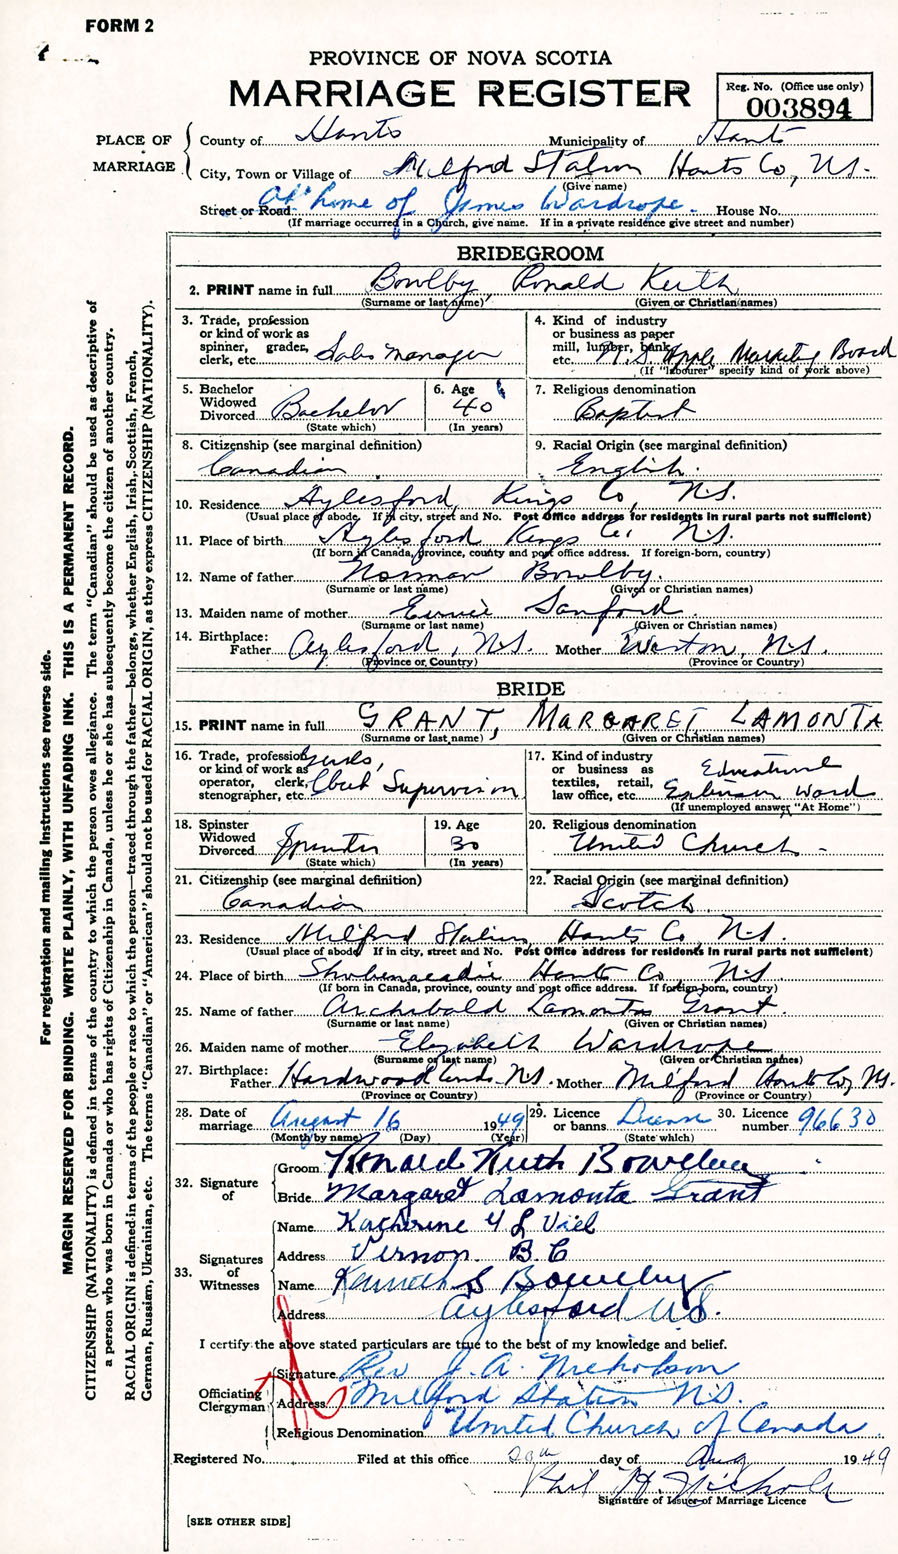 FORM 2
PROVINCE OF NOVA SCOTIA
MARRIAGE REGISTER
Reg. No. (Office use only)
003894
PLACE OF MARRIAGE
County of Hants Municipality of Hants
City, Town or Village of Milford Station Hants Co, N.S.
(Give name)
Street or Road At home of James Wardrope. House No.
(If marriage occurred in a Church, give name. If in a private residence give street and number)
BRIDEGROOM
2. PRINT name in full Bowlby Ronald Keith
(Surname or last name) (Given or Christian names)
3. Trade, profession or kind of work as spinner, grader, clerk, etc. Sales Manager
4. Kind of industry or business as paper mill, lumber, bank, etc. N.S. Apple Marketing Board
(If "labourer" specify kind of work above)
5. Bachelor Widowed Divorced Bachelor
(State which)
6. Age 40
(In years)
7. Religious denomination
Baptist
8. Citizenship (see marginal definition)
Canadian
9. Racial Origin (see marginal definition)
English.
10. Residence Aylesford, Kings Co, N.S.
(Usual place of abode. If in city, street and No. Post Office address for residents in rural parts not sufficient)
11. Place of birth Aylesford Kings Co. N.S.
(If born in Canada, province, county and post office address. If foreign-born, country)
12. Name of father Norman Bowlby.
(Surname or last name) (Given or Christian names)
13. Maiden name of mother Sanford
(Surname or last name) (Given or Christian names)
14. Birthplace: Father Aylesford, N.S. Mother Weston, N.S.
(Province or Country) (Province or Country)
BRIDE
15. PRINT name in full GRANT, MARGARET LAMONTA
(Surname or last name) (Given or Christian names)
16. Trade, profession or kind of work as operator, clerk, stenographer, etc. Supervision
17. Kind of industry or business as textiles, retail, law office, etc. Educational
(If unemployed answer "At Home")
18. Spinster Widowed Divorced Spinster
(State which)
19. Age 30
(In years)
20. Religious denomination
United Church
21. Citizenship (see marginal definition)
Canadian
22. Racial Origin (see marginal definition)
Scotch.
23. Residence Milford Station, Hants Co N.S.
(Usual place of abode If in city, street and No. Post Office address for residents in rural parts not sufficient)
24. Place of birth Shubenacadie Hants Co N.S.
(If born in Canada, province, county and post office address. If foreign-born, country)
25. Name of father Archibald Lamonta Grant.
(Surname or last name) (Given or Christian names)
26. Maiden name of mother Elizabeth Wardrope
(Surname or last name) (Given or Christian names)
27. Birthplace: Father Hardwoodlands N.S. Mother Milford Hants Co, N.S.
(Province or Country) (Province or Country)
28. Date of marriage August 16 1949
(Month by name) (Day) (Year)
29. Licence or banns License
(State which)
30. Licence number 96630
32. Signature of
Groom Ronald Keith Bowlby
Bride Margaret Lamonta Grant
33. Signatures of Witnesses
Name Katherine Y L Viel
Address Vernon B C
Name Kenneth S Bowlby
Address Aylesford N.S.
I certify the above stated particulars are true to the best of my knowledge and belief.
Officiating Clergyman
Signature Rev J. A. Nicholson
Address Milford Station N.S.
Religious Denomination United Church of Canada
Registered No. Filed at this office 20th day of Aug 1949
Phil H. Nichols
Signature of Issuer of Marriage Licence
[SEE OTHER SIDE]
For registration and mailing instructions see reverse side.
MARGIN RESERVED FOR BINDING. WRITE PLAINLY, WITH UNFADING INK. THIS IS A PERMANENT RECORD.
CITIZENSHIP (NATIONALITY) is defined in terms of the country to which the person owes allegiance. The term "Canadian" should be used as descriptive of
a person who was born in Canada or who has rights of Citizenship in Canada, unless he or she has subsequently become the citizen of another country.
RACIAL ORIGIN is defined in terms of the people or race to which the person—traced through the father—belongs, whether English, Irish, Scottish, French,
German, Russian, Ukrainian, etc. The terms "Canadian" or "American" should not be used for RACIAL ORIGIN, as they express CITIZENSHIP (NATIONALITY).